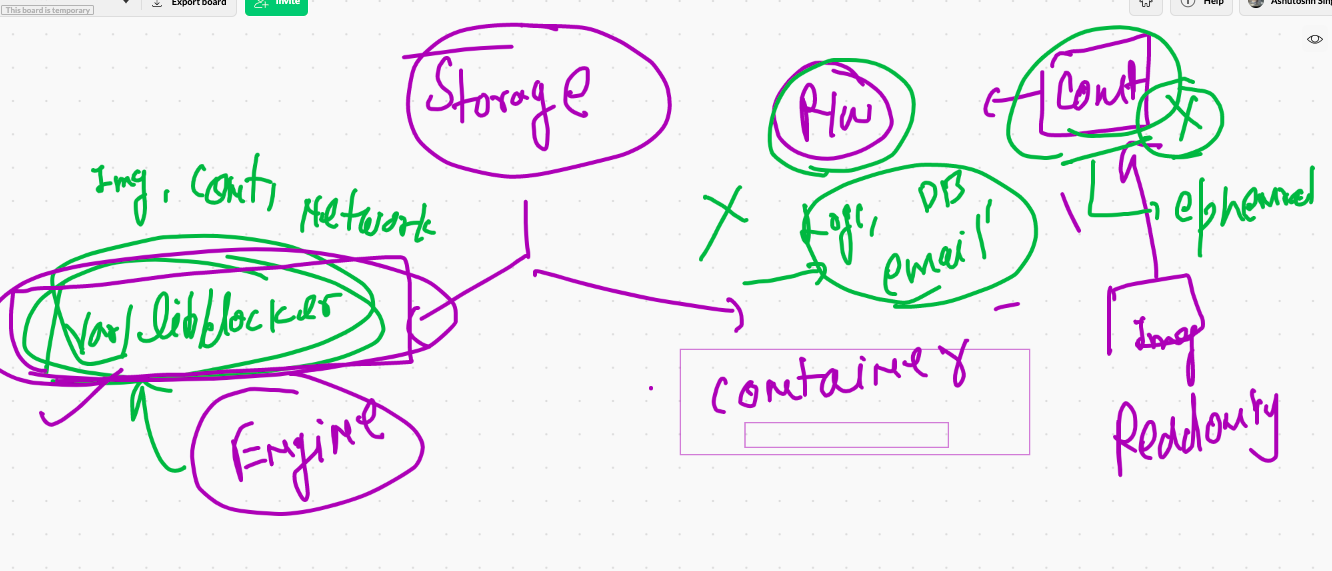 This board is temporary
Export board
Invite
Help
Ashutosh Sin
Storage
R/W
Cont
X
Img, Cont,
Network
X
Logs, DB
email
ephemeral
var/lib/docker
Engine
Container
Img
Readonly